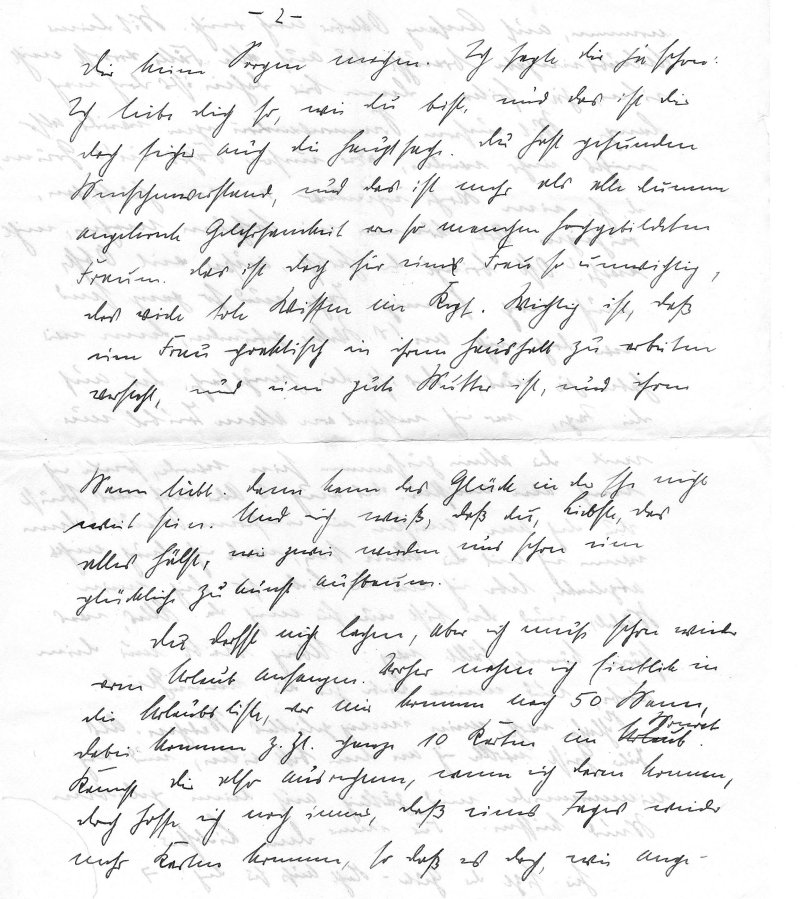 - 2 -
Dir keine Sorgen machen. Ich sagte dir ja schon:
Ich liebe dich so, wie du bist, und das ist die
doch sicher auch die Hauptsache. Du hast gesunden
Menschenverstand, und das ist mehr als alle dumme
angelernte Gelehrsamkeit von so manchen hochgebildeten
Frauen. Das ist doch für eine Frau so unwichtig,
das viele tote Wissen im Kopf. Wichtig ist, daß
eine Frau praktisch in ihrem Haushalt zu arbeiten
versteht, und eine gute Mutter ist, und ihren
Mann liebt. Dann kann das Glück in der Ehe nicht
weit sein. Und ich weiß, daß du, Liebste, das
alles hältst, wir zwei werden uns schon eine
glückliche Zukunft aufbauen.
Du darfst nicht lachen, aber ich muß schon wieder
vom Urlaub anfangen. Vorher nahm ich Einblick in
die Urlaubsliste, vor mir kommen noch 50 Mann,
dabei kommen z. Zt. ganze 10 Karten im Urlaub Monat.
Kannst dir also ausrechnen, wann ich dann komme,
doch hoffe ich noch immer, daß eines Tages wieder
mehr Karten kommen, so daß es doch, wie ange-